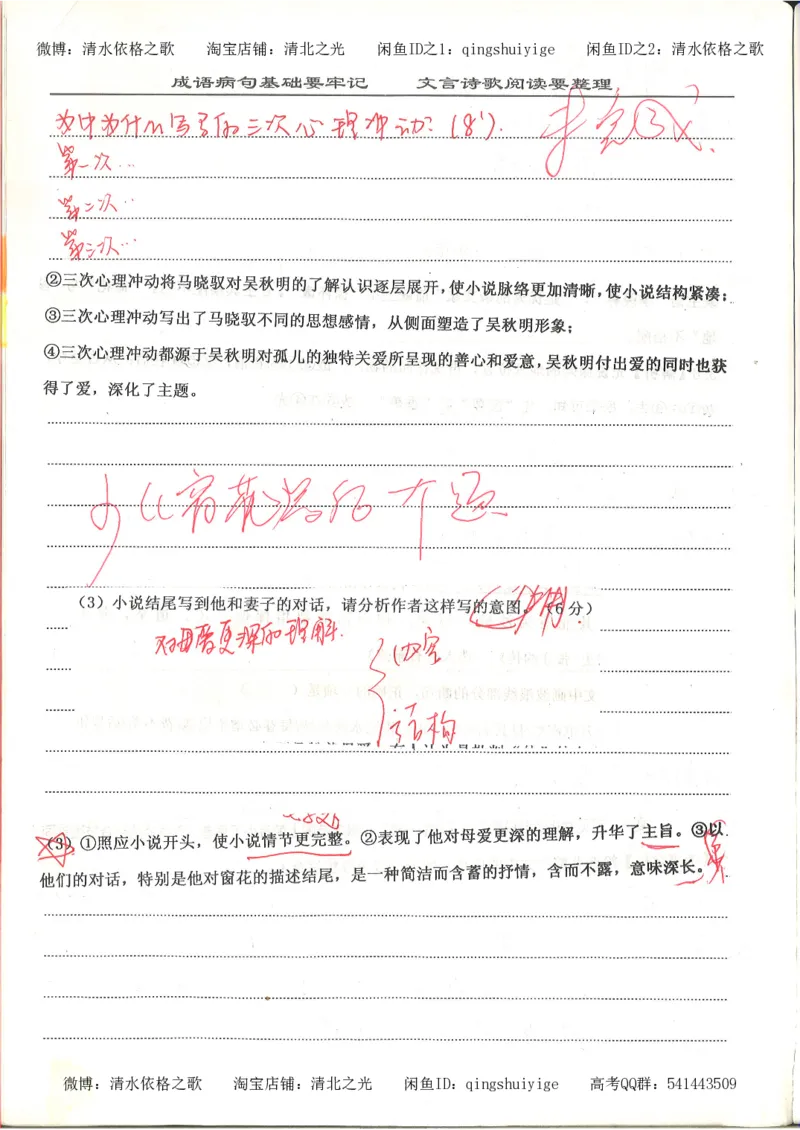 微博：清水依格之歌 淘宝店铺：清北之光 闲鱼ID之1：qingshuiyige 闲鱼ID之2：清水依格之歌
成语病句基础要牢记 文言诗歌阅读要整理
文中为什么写的三次心理冲动？(8').
第一次…
第二次…
第三次…
②三次心理冲动将马晓驭对吴秋明的了解认识逐层展开，使小说脉络更加清晰，使小说结构紧凑；
③三次心理冲动写出了马晓驭不同的思想感情，从侧面塑造了吴秋明形象；
④三次心理冲动都源于吴秋明对孤儿的独特关爱所呈现的善心和爱意，吴秋明付出爱的同时也获
得了爱，深化了主题。
（3）小说结尾写到他和妻子的对话，请分析作者这样写的意图。（6分）
对母爱更深的理解.
内容
结构
（3）①照应小说开头，使小说情节更完整。②表现了他对母爱更深的理解，升华了主旨。③以
他们的对话，特别是他对窗花的描述结尾，是一种简洁而含蓄的抒情，含而不露，意味深长。
微博：清水依格之歌 淘宝店铺：清北之光 闲鱼ID：qingshuiyige 高考QQ群：541443509